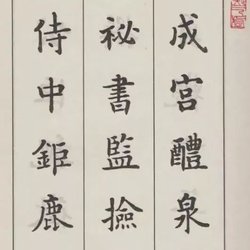 成宮醴泉
祕書監撿
侍中鉅鹿